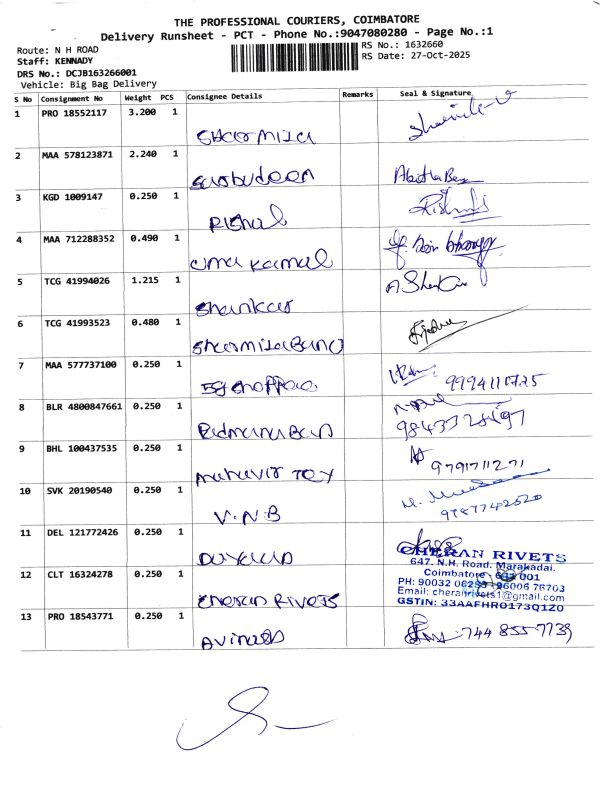 THE PROFESSIONAL COURIERS, COIMBATORE
Delivery Runsheet - PCT - Phone No.:9047080280 - Page No.:1
Route: N H ROAD
RS No.: 1632660
Staff: KENNADY
RS Date: 27-Oct-2025
DRS No.: DCJB163266001
Vehicle: Big Bag Delivery
S No Consignment No Weight PCS Consignee Details Remarks Seal & Signature
1 PRO 18552117 3.200 1 Sharmila
2 MAA 578123871 2.240 1
3 KGD 1009147 0.250 1 Rishal
4 MAA 712288352 0.490 1 Uma Kamal
5 TCG 41994026 1.215 1 Shankar A Shankar
6 TCG 41993523 0.480 1 Sharmila Banu
7 MAA 577737100 0.250 1 9994111725
8 BLR 4800847661 0.250 1 Padmanaban
9 BHL 100437535 0.250 1 Mahavir Toy 9791711271
10 SVK 20190540 0.250 1 V.N.B 9787742520
11 DEL 121772426 0.250 1
12 CLT 16324278 0.250 1 Cheran Rivets
CHERAN RIVETS
647, N.H. Road, Marakadai,
Coimbatore 641 001
PH: 90032 06255 96006 76703
Email: cheranrivets1@gmail.com
GSTIN: 33AAFHR0173Q1Z0
13 PRO 18543771 0.250 1 Avinash 744 855 7739